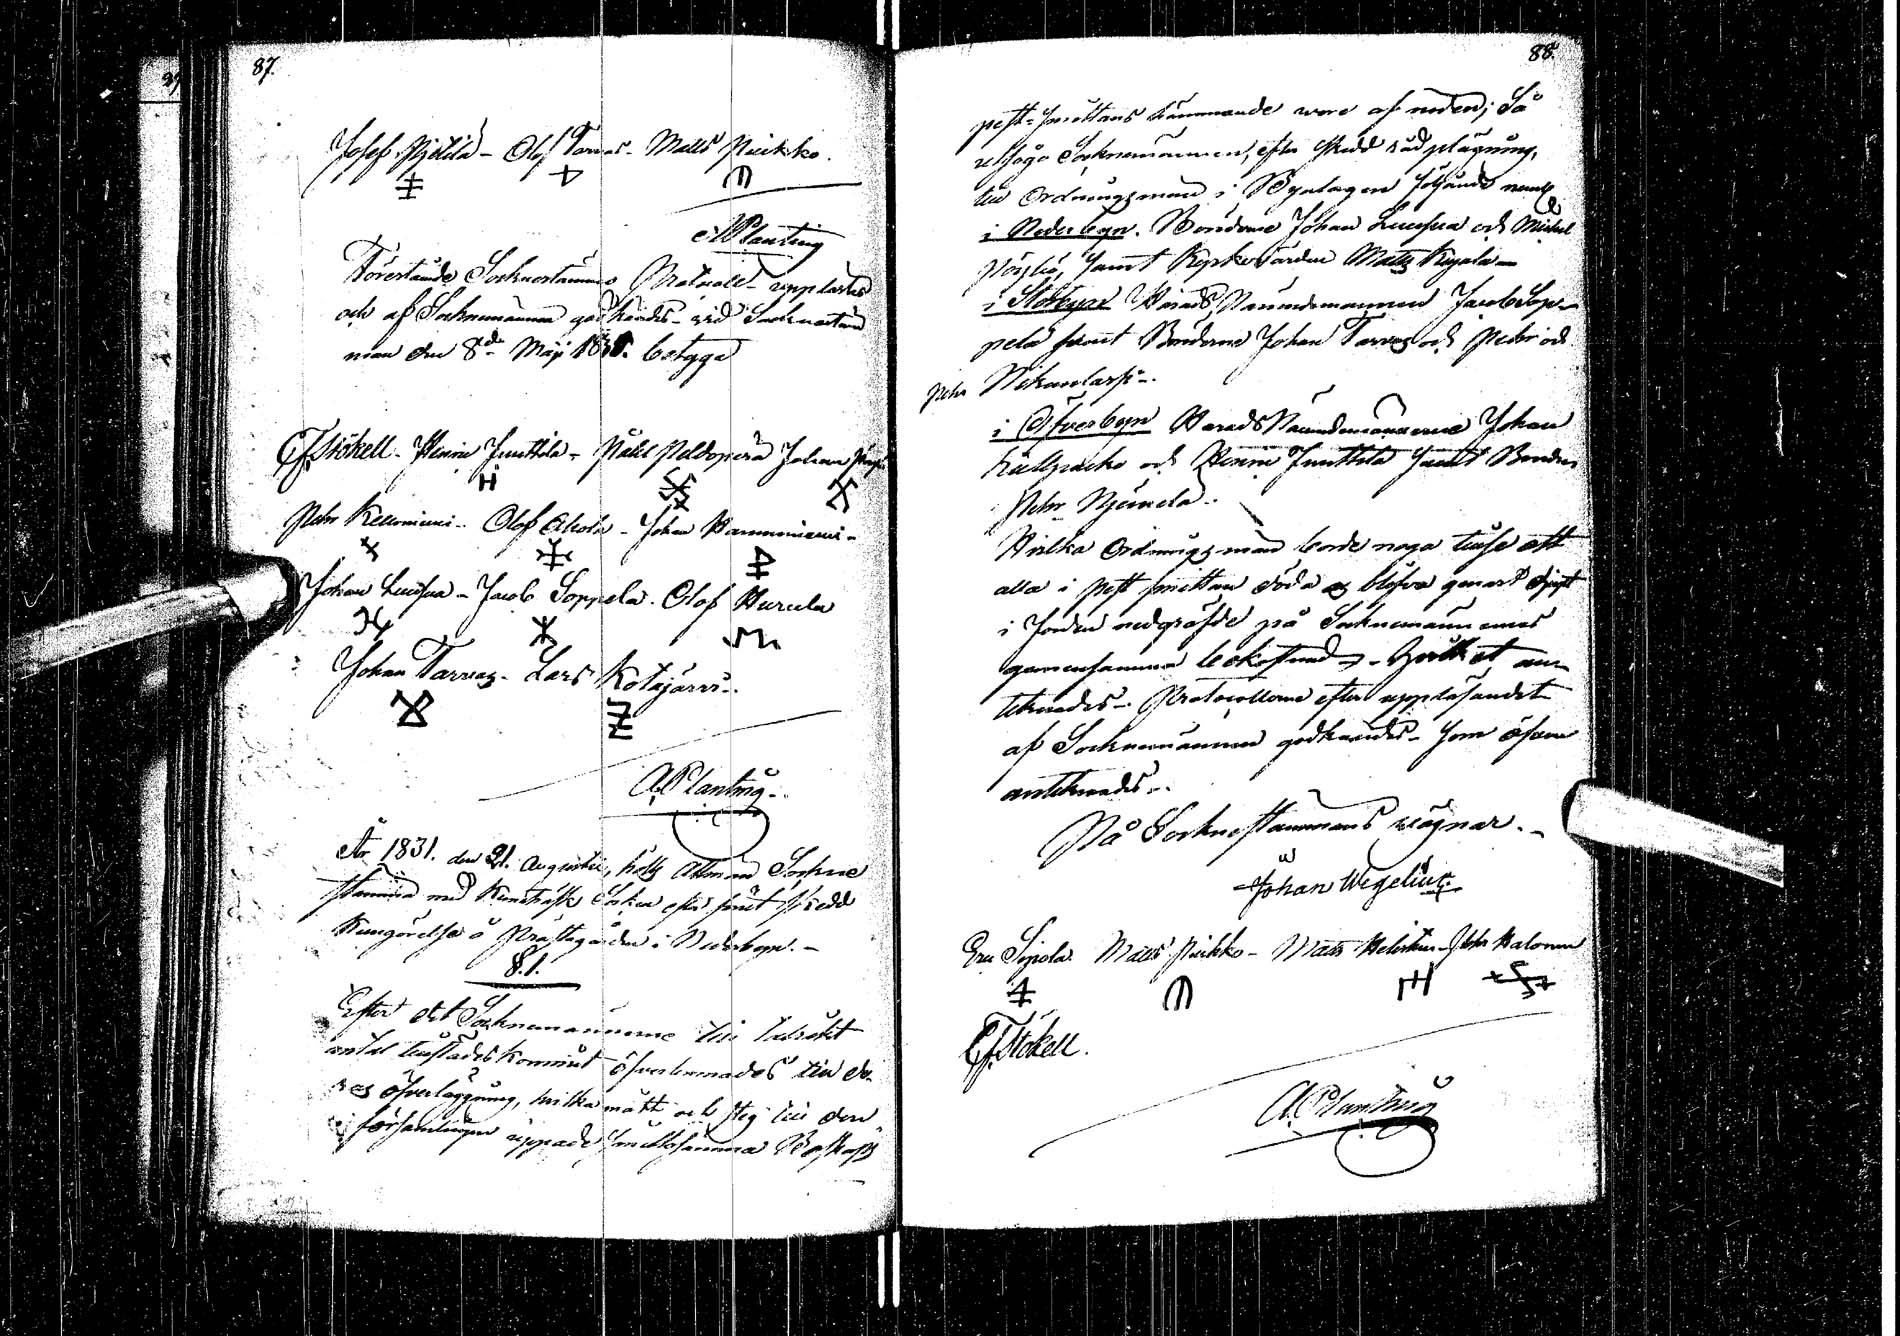 87.
Josef Pietilä - Olof Tarvas - Matts Pirikko.
A Planting
Förestående Sockenstämmo Protocoll - upplästes
och af Sockenmännen godkändes - vid Sockenstäm
man den 8de Maji 1831. betyga
CJ Stökell - Henric Junttila - Påhl Peldoperä Johan
Pehr Kelloniemi - Olof Ahola - Johan Hannuniemi -
Johan Luusua - Jacob Soppela. Olof Hurula
Johan Tarvas - Lars Kotajärvi -
A. Planting.
År 1831. den 21. Augustii, hölts Allmän Sockne
stämma med Kemiträsk Socken efter förut skedd
Kungörelse å Prästegården i Nederbyn. -
§. 1.
Efter det Sockenmännerne till talrikt
antal tillstädes kommit öfverlemnades till de-
res öfverläggning, hvilka mått och steg till den
i församlingen yppade smittosamma Boskaps
88.
pest-smittans hämmande vore af nöden; Så
utsågo Socknemännen, efter skedd rådplägning,
till Ordningsmän i Byalagen följande neml
i Nederbyn. Bönderne Johan Luusua och Michel
Pöyliö, samt Kyrkovärden Matts Kejala -
i Stöbyn Härads Nämndemannen Jacob Sop-
pela samt Bönderne Johan Tarvas och Pehr och
Pehr Nikanlassi -
i Öfverbyn Härads Nämndemännerne Johan
Kallpacko och Henric Junttila samt Bonden
Pehr Njemelä -
Hvilka Ordningsmän borde noga tillse att
alla i pest smittan döda blefve genast djupt
i Jorden nedgräfde på Sockenmännernes
gemensamma bekostnad - Hvilket an-
teknades - Protocollerne efter uppläsandet
af Sockenmännen godkändes - som äfven
anteknades -
På Sockenstämmans vägnar. -
Johan Wegelius.
Eric Sipola Matts Pirikko - Matts Pehr Halonen
CJ Stökell.
A. Planting